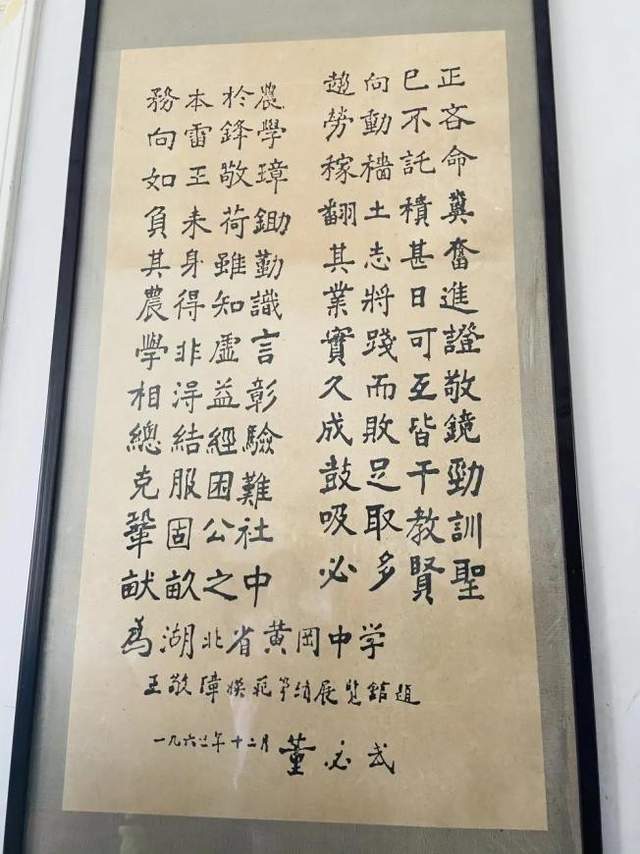 務本於農
向雷鋒學
如王敬璋
負耒荷鋤
其身雖勤
農得知識
學非虛言
相得益彰
總結經驗
克服困難
鞏固公社
献畝之中
趨向已正
勞動不吝
稼穡託命
翻土積糞
其志甚奮
業將日進
實踐可證
久而互敬
成敗皆鏡
鼓足干勁
吸取教訓
必多賢聖
為湖北省黄冈中学
王敬璋模范事績展览館題
一九六三年十二月 董必武